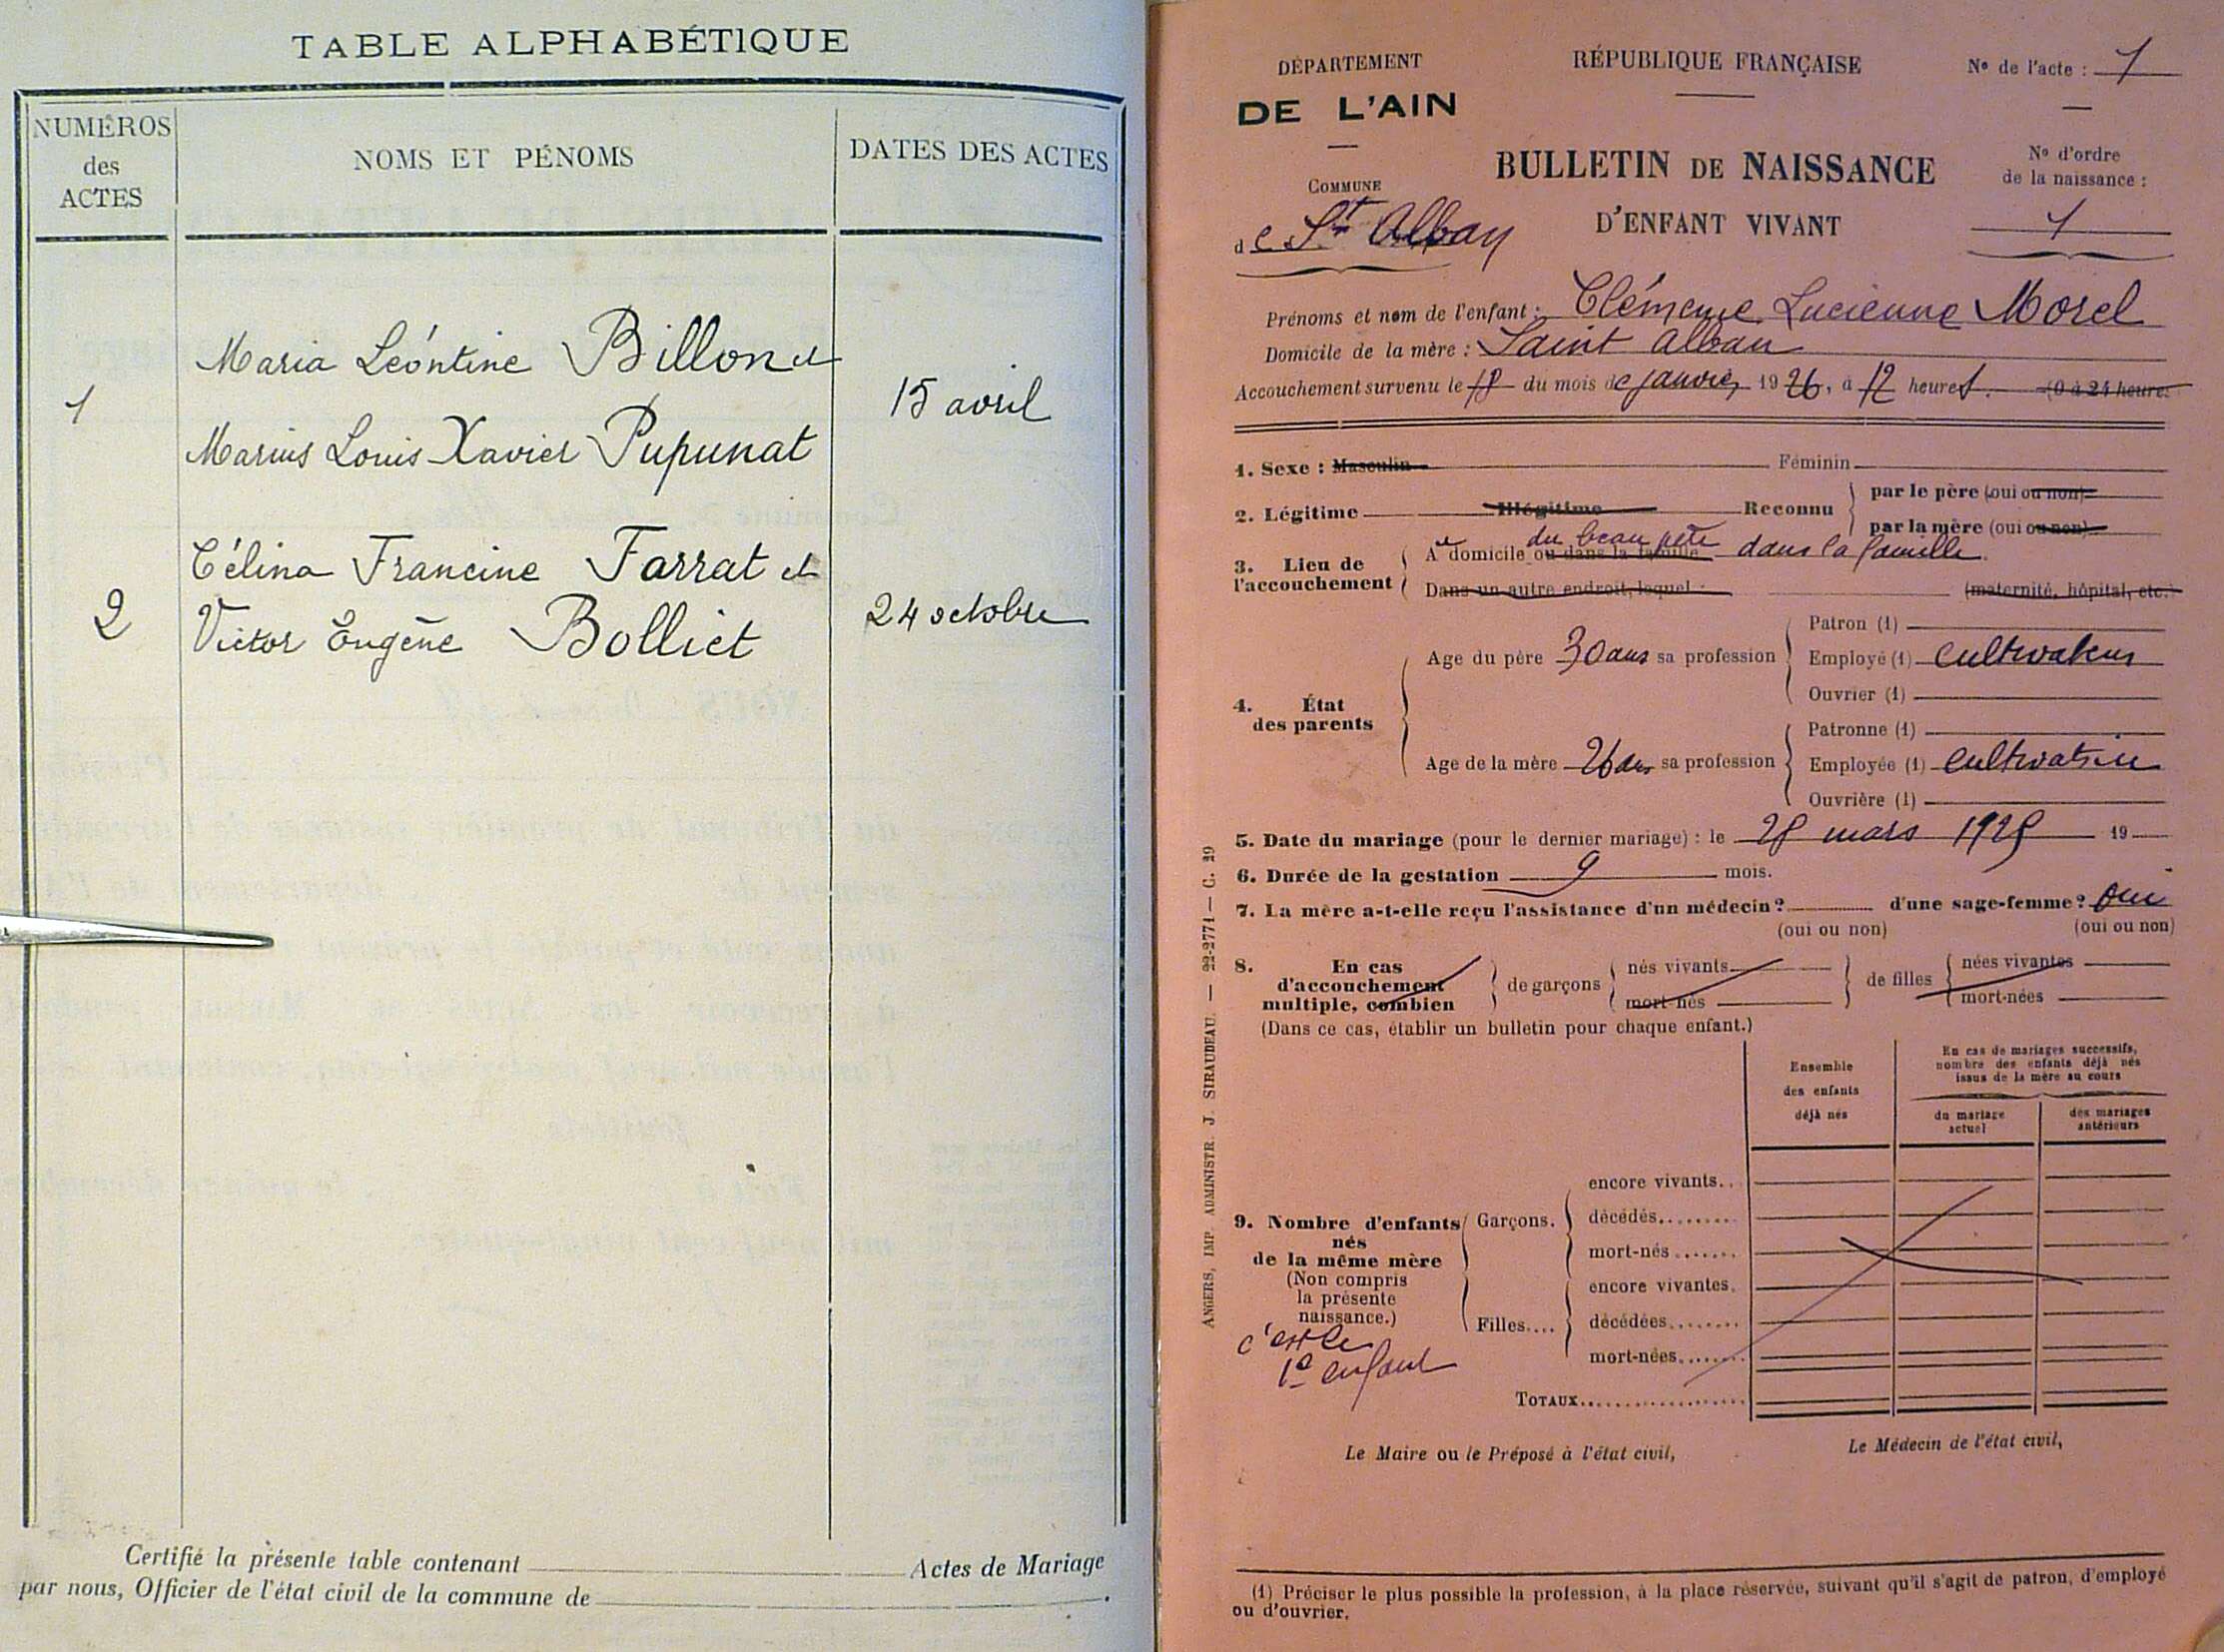 TABLE ALPHABÉTIQUE
NUMÉROS
des
ACTES
NOMS ET PÉNOMS
DATES DES ACTES
Maria Léontine Billon et
1
15 avril
Marius Louis Xavier Pupunat
Célina Francine Farrat et
2
24 octobre
Victor Eugène Bolliet
Certifié la présente table contenant Actes de Mariage
par nous, Officier de l'état civil de la commune de .
DÉPARTEMENT
DE L'AIN
COMMUNE
de St Alban
RÉPUBLIQUE FRANÇAISE
BULLETIN DE NAISSANCE
D'ENFANT VIVANT
No de l'acte : 1
No d'ordre
de la naissance :
1
Prénoms et nom de l'enfant : Clémence Lucienne Morel
Domicile de la mère : Saint Alban
Accouchement survenu le 18 du mois de janvier 1926, à 12 heures. (0 à 24 heures
1. Sexe : Masculin Féminin
2. Légitime Illégitime Reconnu
par le père (oui ou non)
par la mère (oui ou non)
3. Lieu de
l'accouchement
du beau père
A domicile ou dans la famille dans la famille
Dans un autre endroit, lequel : (maternité, hôpital, etc.)
4. État
des parents
Age du père 30 ans sa profession
Patron (1)
Employé (1) cultivateur
Ouvrier (1)
Age de la mère 26 ans sa profession
Patronne (1)
Employée (1) cultivatrice
Ouvrière (1)
5. Date du mariage (pour le dernier mariage) : le 28 mars 1925 19
6. Durée de la gestation 9 mois.
7. La mère a-t-elle reçu l'assistance d'un médecin ? d'une sage-femme ? oui
(oui ou non) (oui ou non)
8. En cas
d'accouchement
multiple, combien
de garçons
nés vivants
mort-nés
de filles
nées vivantes
mort-nées
(Dans ce cas, établir un bulletin pour chaque enfant.)
Ensemble
des enfants
déjà nés
En cas de mariages successifs,
nombre des enfants déjà nés
issus de la mère au cours
du mariage
actuel
des mariages
antérieurs
9. Nombre d'enfants
nés
de la même mère
(Non compris
la présente
naissance.)
c'est le
1e enfant
Garçons.
encore vivants..
décédés........
mort-nés.......
Filles....
encore vivantes.
décédées........
mort-nées.......
TOTAUX..................
Le Maire ou le Préposé à l'état civil,
Le Médecin de l'état civil,
(1) Préciser le plus possible la profession, à la place réservée, suivant qu'il s'agit de patron, d'employé
ou d'ouvrier.
ANGERS, IMP. ADMINISTR. J. SIRAUDEAU. — 22-2771 — C. 29